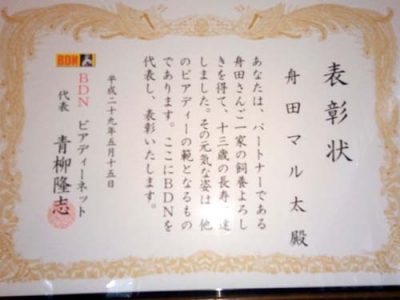 表彰状
舟田マル太殿
あなたは、パートナーである
舟田さんご一家の飼養よろし
きを得て、十三歳の長寿 達
しました。その元気な姿は 他
のビアディーの範となるもの
であります。ここにＢＤＮを
代表し、表彰いたします。
平成二十九年五月十五日
BDN
BDN ビアディーネット
代表 青柳隆志